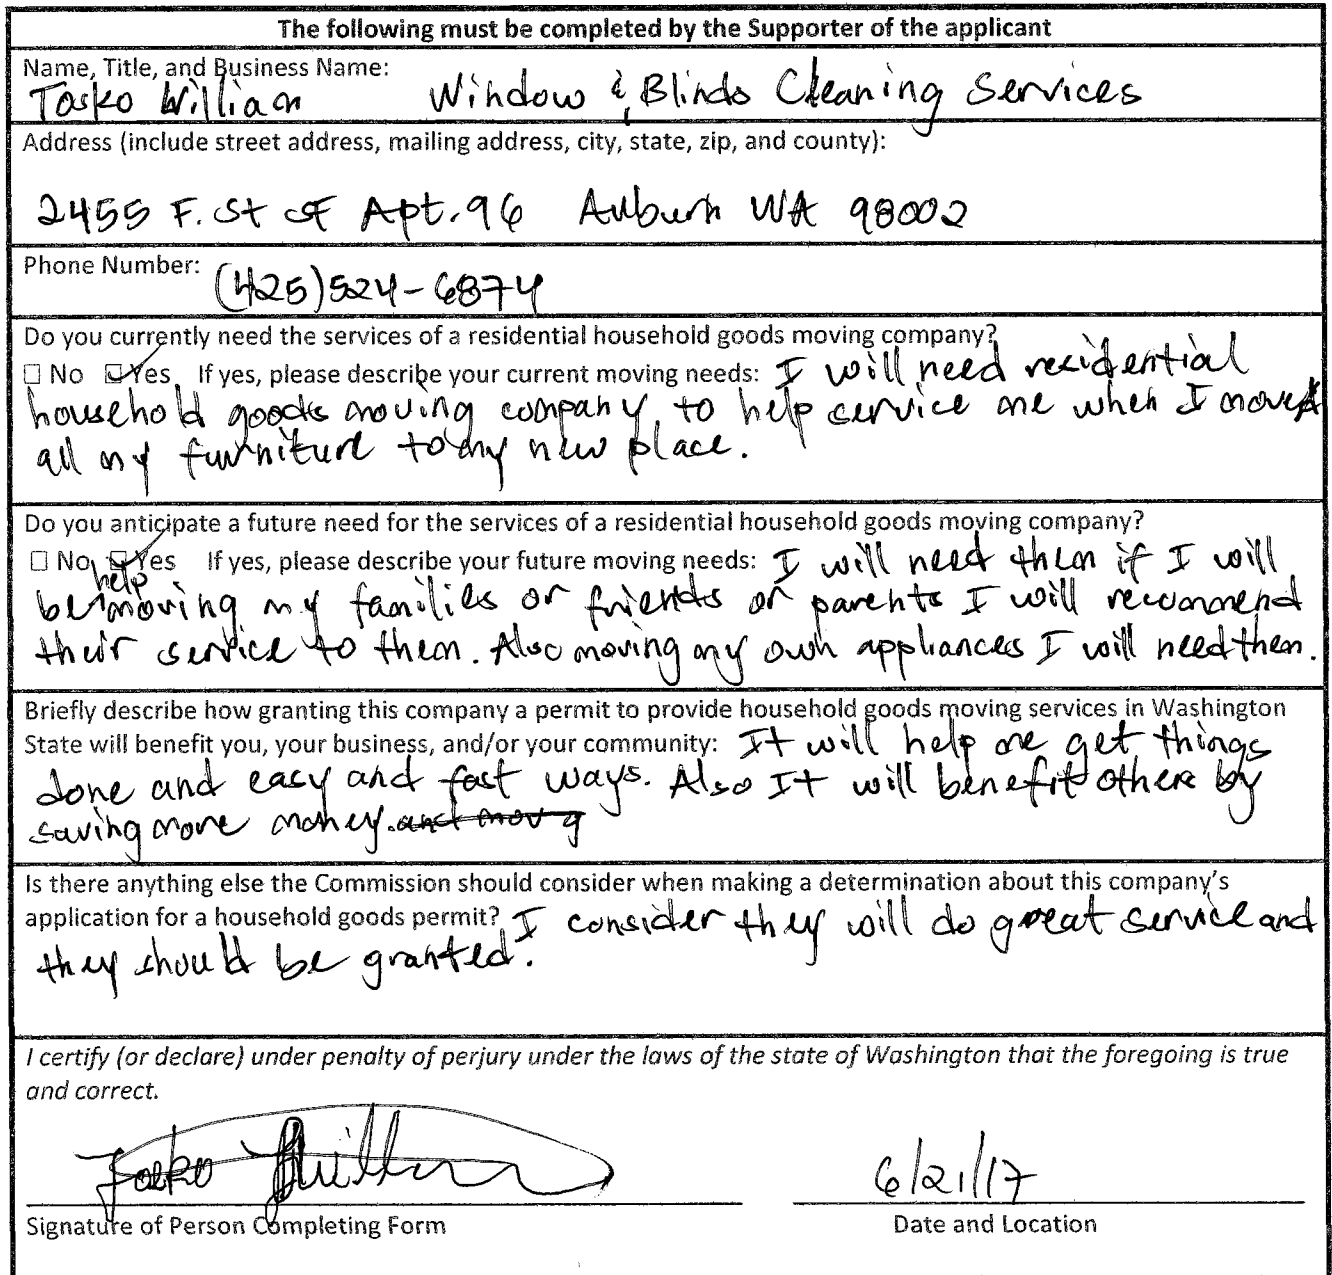 The following must be completed by the Supporter of the applicant
Name, Title, and Business Name:
Tosko William Window & Blinds Cleaning Services
Address (include street address, mailing address, city, state, zip, and county):
2455 F. St SE Apt. 96 Auburn WA 98002
Phone Number: (425) 524-6874
Do you currently need the services of a residential household goods moving company?
☐ No ☑ Yes If yes, please describe your current moving needs: I will need residential
household goods moving company to help service me when I move
all my furniture to my new place.
Do you anticipate a future need for the services of a residential household goods moving company?
☐ No ☑ Yes If yes, please describe your future moving needs: I will need them if I will
be help moving my families or friends or parents I will recommend
their service to them. Also moving my own appliances I will need them.
Briefly describe how granting this company a permit to provide household goods moving services in Washington
State will benefit you, your business, and/or your community: It will help me get things
done and easy and fast ways. Also It will benefit others by
saving more money.
Is there anything else the Commission should consider when making a determination about this company's
application for a household goods permit? I consider they will do great service and
they should be granted.
I certify (or declare) under penalty of perjury under the laws of the state of Washington that the foregoing is true
and correct.
6/21/17
Signature of Person Completing Form Date and Location